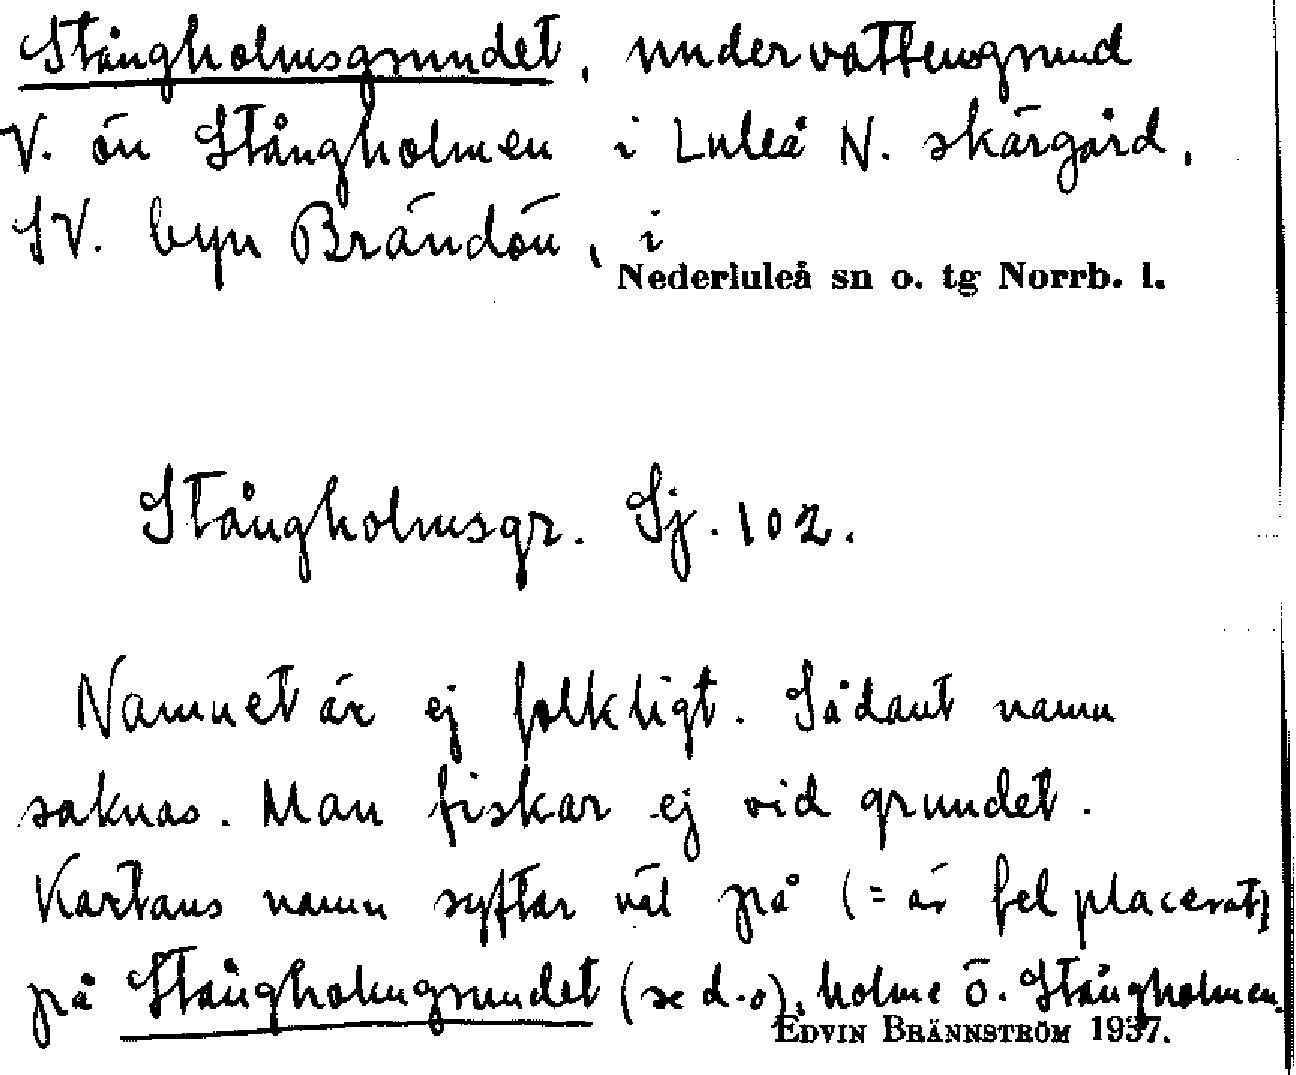 Stångholmsgrundet, undervattensgrund
V. ön Stångholmen i Luleå N. skärgård,
SV. byn Brändön, i
Nederluleå sn o. tg Norrb. l.
Stångholmsgr. Sj. 102.
Namnet är ej folkligt. Sådant namn
saknas. Man fiskar ej vid grundet.
Kartans namn syftar väl på (= är fel placerat)
på Stångholmgrundet (se d.o), holme Ö. Stångholmen.
EDVIN BRÄNNSTRÖM 1937.